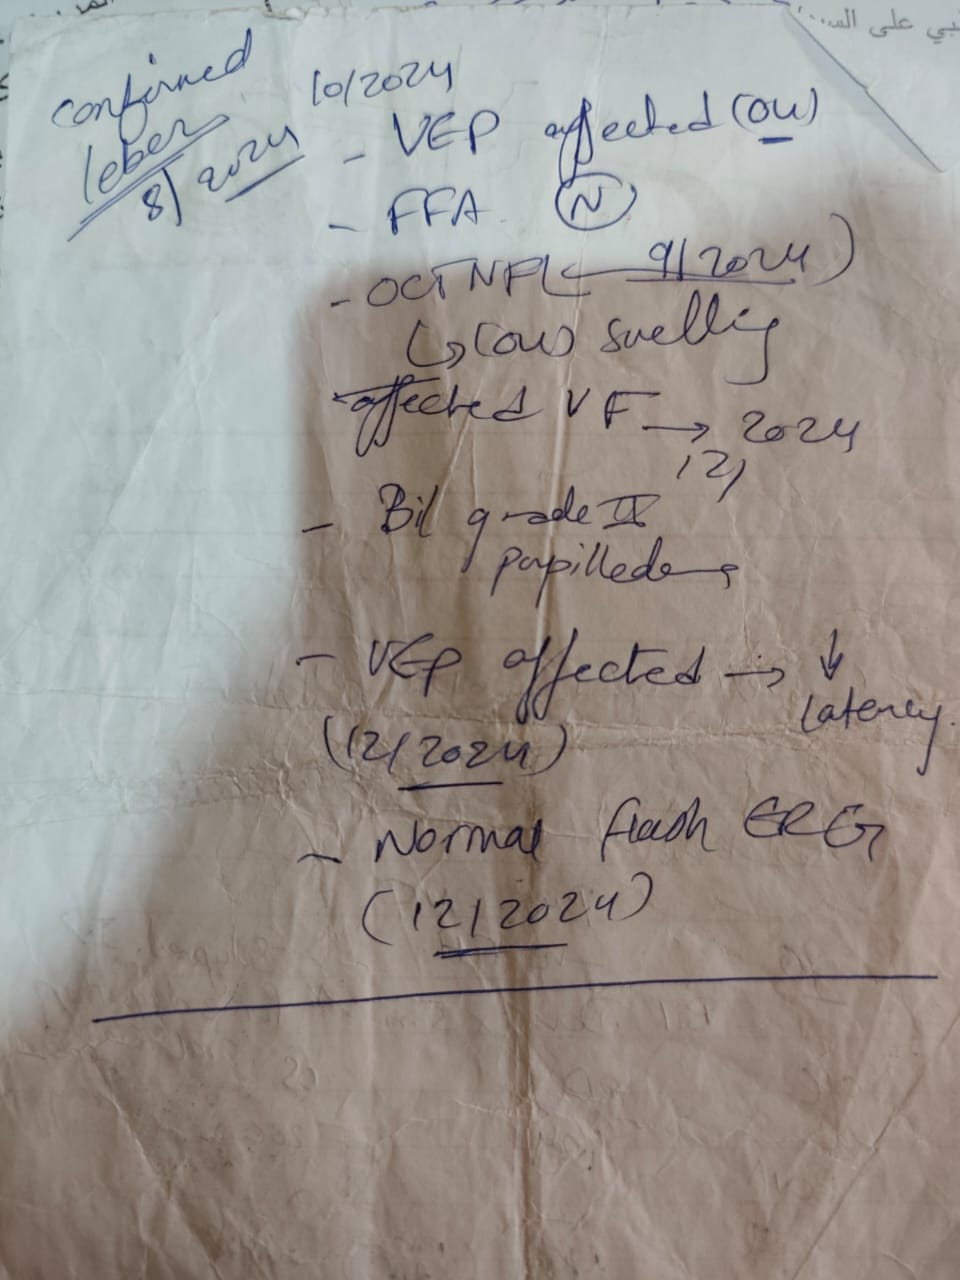 على الس...
confirmed
leber
8/2024
10/2024
- VEP affected (ou)
- FFA (N)
- OCT NFL (9/2024)
↳ (ou) swelling
- affected VF → 2024
12/
- Bil grade IV
papilledema
- VEP affected → ↓
latency.
(12/2024)
- Normal flash ERG
(12/2024)